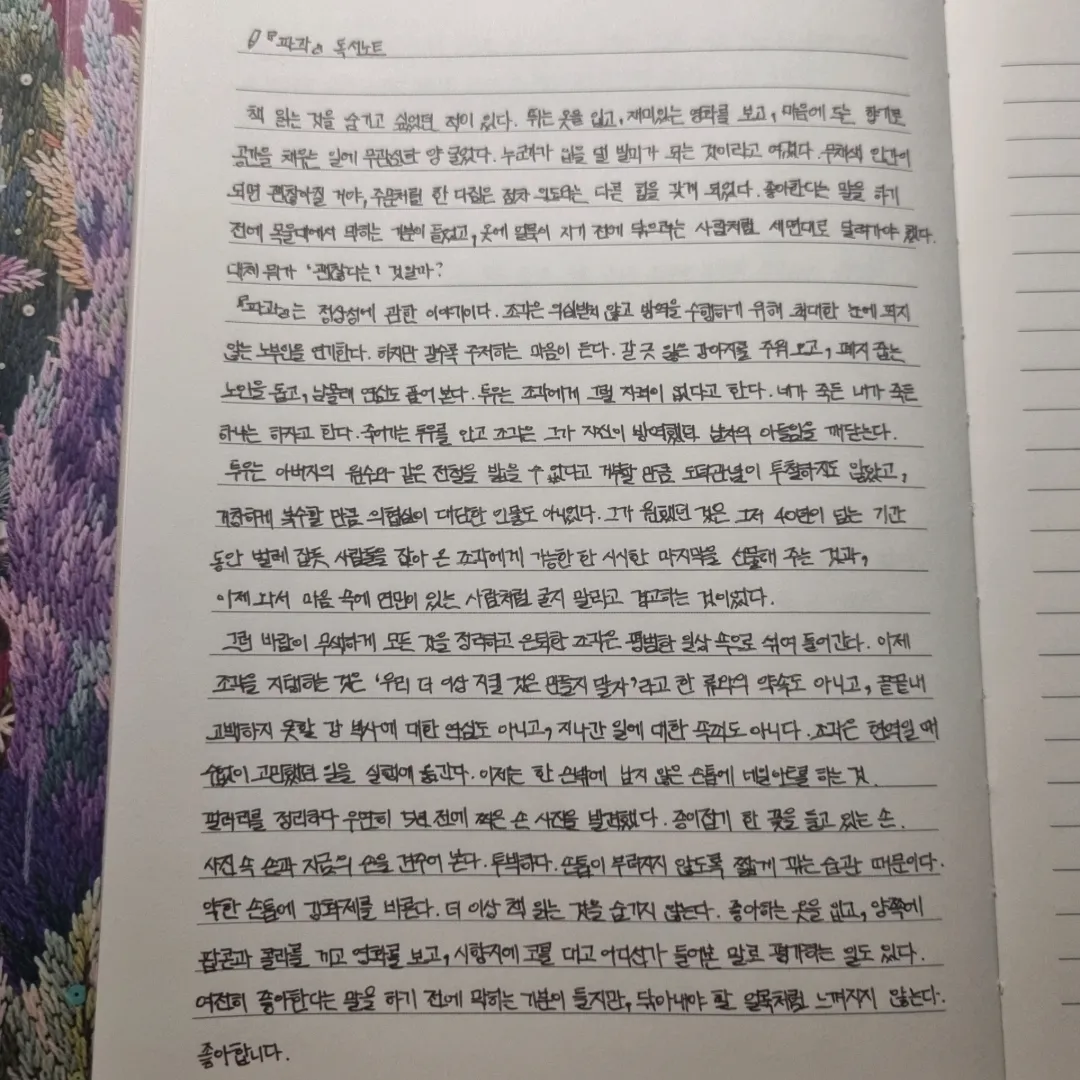 『파과』 독서노트
책 읽는 것을 숨기고 싶었던 적이 있다. 튀는 옷을 입고, 재미있는 영화를 보고, 마음에 드는 향기로
공간을 채우는 일에 무관심한 양 굴었다. 누군가가 입을 댈 빌미가 되는 것이라고 여겼다. 무채색 인간이
되면 괜찮아질 거야, 주문처럼 한 다짐은 점차 의도와는 다른 힘을 갖게 되었다. 좋아한다는 말을 하기
전에 목울대에서 막히는 기분이 들었고, 옷에 얼룩이 지기 전에 닦으려는 사람처럼 세면대로 달려가야 했다.
대체 뭐가 '괜찮다는' 것일까?
『파과』는 정상성에 관한 이야기이다. 조각은 의심받지 않고 방역을 수행하기 위해 최대한 눈에 띄지
않는 노부인을 연기한다. 하지만 갈수록 주저하는 마음이 든다. 갈 곳 잃은 강아지를 주워 오고, 폐지 줍는
노인을 돕고, 남몰래 연심도 품어 본다. 투우는 조각에게 그럴 자격이 없다고 한다. 네가 죽든 내가 죽든
하나는 하자고 한다. 죽어가는 투우를 안고 조각은 그가 자신이 방역했던 남자의 아들임을 깨닫는다.
투우는 아버지의 원수와 같은 전철을 밟을 수 없다고 개심할 만큼 도덕관념이 투철하지도 않았고,
거창하게 복수할 만큼 의협심이 대단한 인물도 아니었다. 그가 원했던 것은 그저 40년이 넘는 기간
동안 벌레 잡듯 사람들을 잡아 온 조각에게 가능한 한 시시한 마지막을 선물해 주는 것과,
이제 와서 마음 속에 연민이 있는 사람처럼 굴지 말라고 경고하는 것이었다.
그런 바람이 무색하게 모든 것을 정리하고 은퇴한 조각은 평범한 일상 속으로 섞여 들어간다. 이제
조각을 지탱하는 것은 '우리 더 이상 지킬 것은 만들지 말자'라고 한 류와의 약속도 아니고, 끝끝내
고백하지 못할 강 박사에 대한 연심도 아니고, 지나간 일에 대한 속죄도 아니다. 조각은 현역일 때
수없이 고민했던 일을 실행에 옮긴다. 이제는 한 손밖에 남지 않은 손톱에 네일아트를 하는 것.
갤러리를 정리하다 우연히 5년 전에 찍은 손 사진을 발견했다. 종이접기 한 꽃을 들고 있는 손.
사진 속 손과 지금의 손을 견주어 본다. 투박하다. 손톱이 부러지지 않도록 짧게 깎는 습관 때문이다.
약한 손톱에 강화제를 바른다. 더 이상 책 읽는 것을 숨기지 않는다. 좋아하는 옷을 입고, 양쪽에
팝콘과 콜라를 끼고 영화를 보고, 시향지에 코를 대고 어디선가 들어본 말로 평가하는 일도 있다.
여전히 좋아한다는 말을 하기 전에 막히는 기분이 들지만, 닦아내야 할 얼룩처럼 느껴지지 않는다.
좋아합니다.